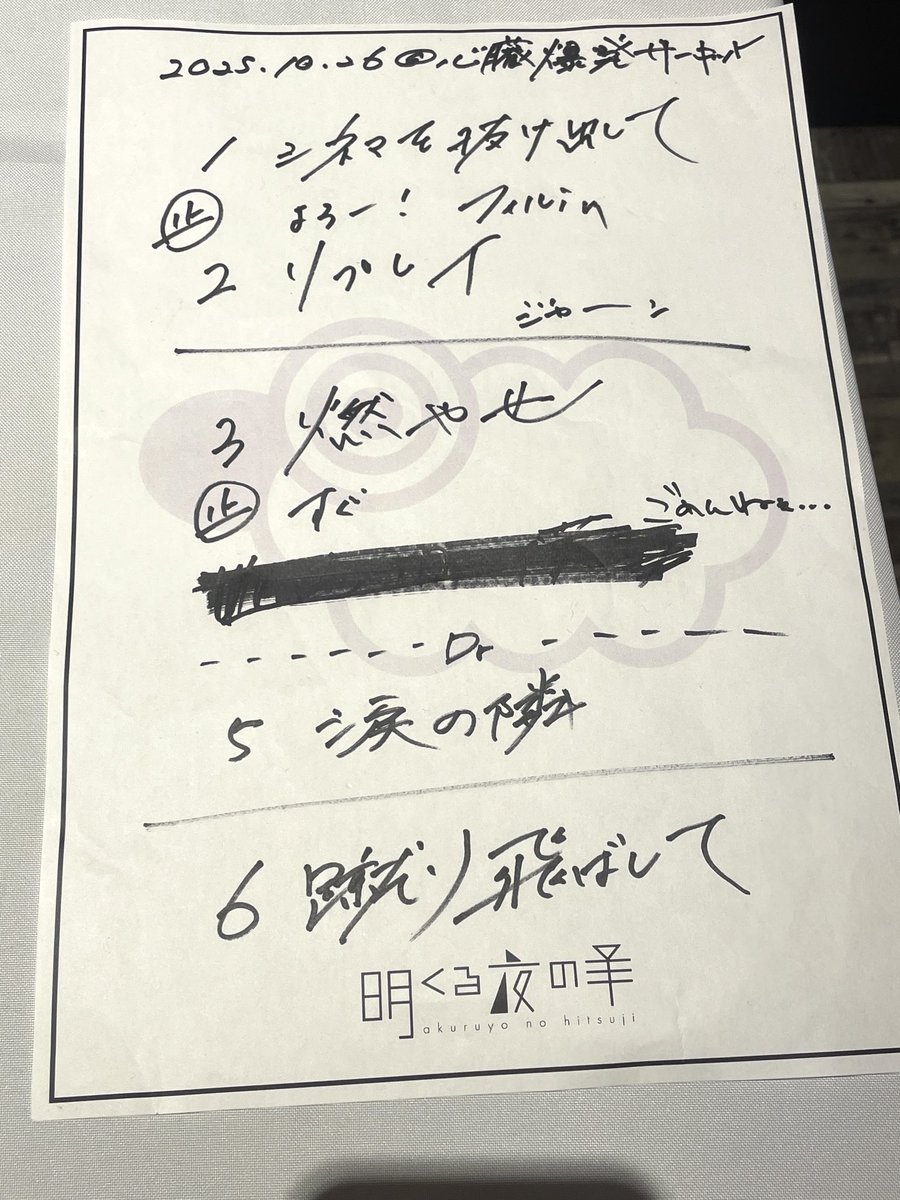 2025.10.26@心臓爆発サーキット
1 シネマを抜け出して
止 よろー! フィルin
2 リプレイ
ジャーン
3 燃やせ
止 すぐ
ごめんねぇ...
Dr
5 涙の隣
6 蹴り飛ばして
明くる夜の羊
akuruyo no hitsuji